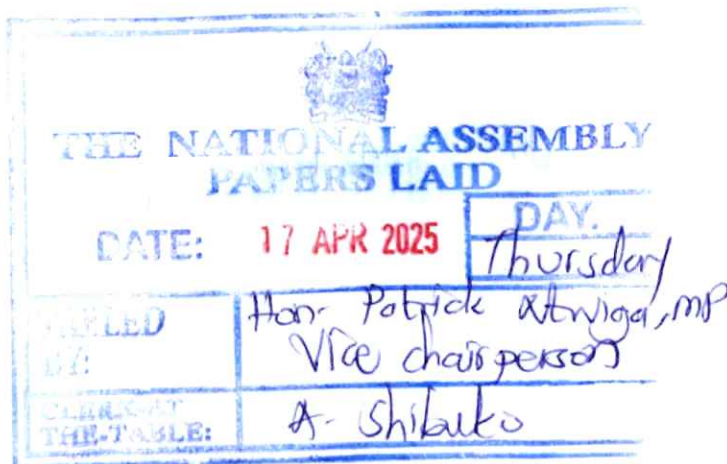 THE NATIONAL ASSEMBLY
PAPERS LAID
DATE: 17 APR 2025
DAY.
Thursday
TABLED BY:
Hon. Patrick MP
Vice chairperson
CLERK-AT THE-TABLE:
A. Shibuko